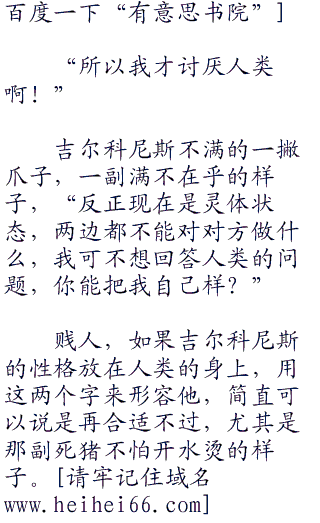 百度一下“有意思书院”]
“所以我才讨厌人类
啊！”
吉尔科尼斯不满的一撇
爪子，一副满不在乎的样
子，“反正现在是灵体状
态，两边都不能对对方做什
么，我可不想回答人类的问
题，你能把我自己样？”
贱人，如果吉尔科尼斯
的性格放在人类的身上，用
这两个字来形容他，简直可
以说是再合适不过，尤其是
那副死猪不怕开水烫的样
子。[请牢记住域名
www.heihei66.com]